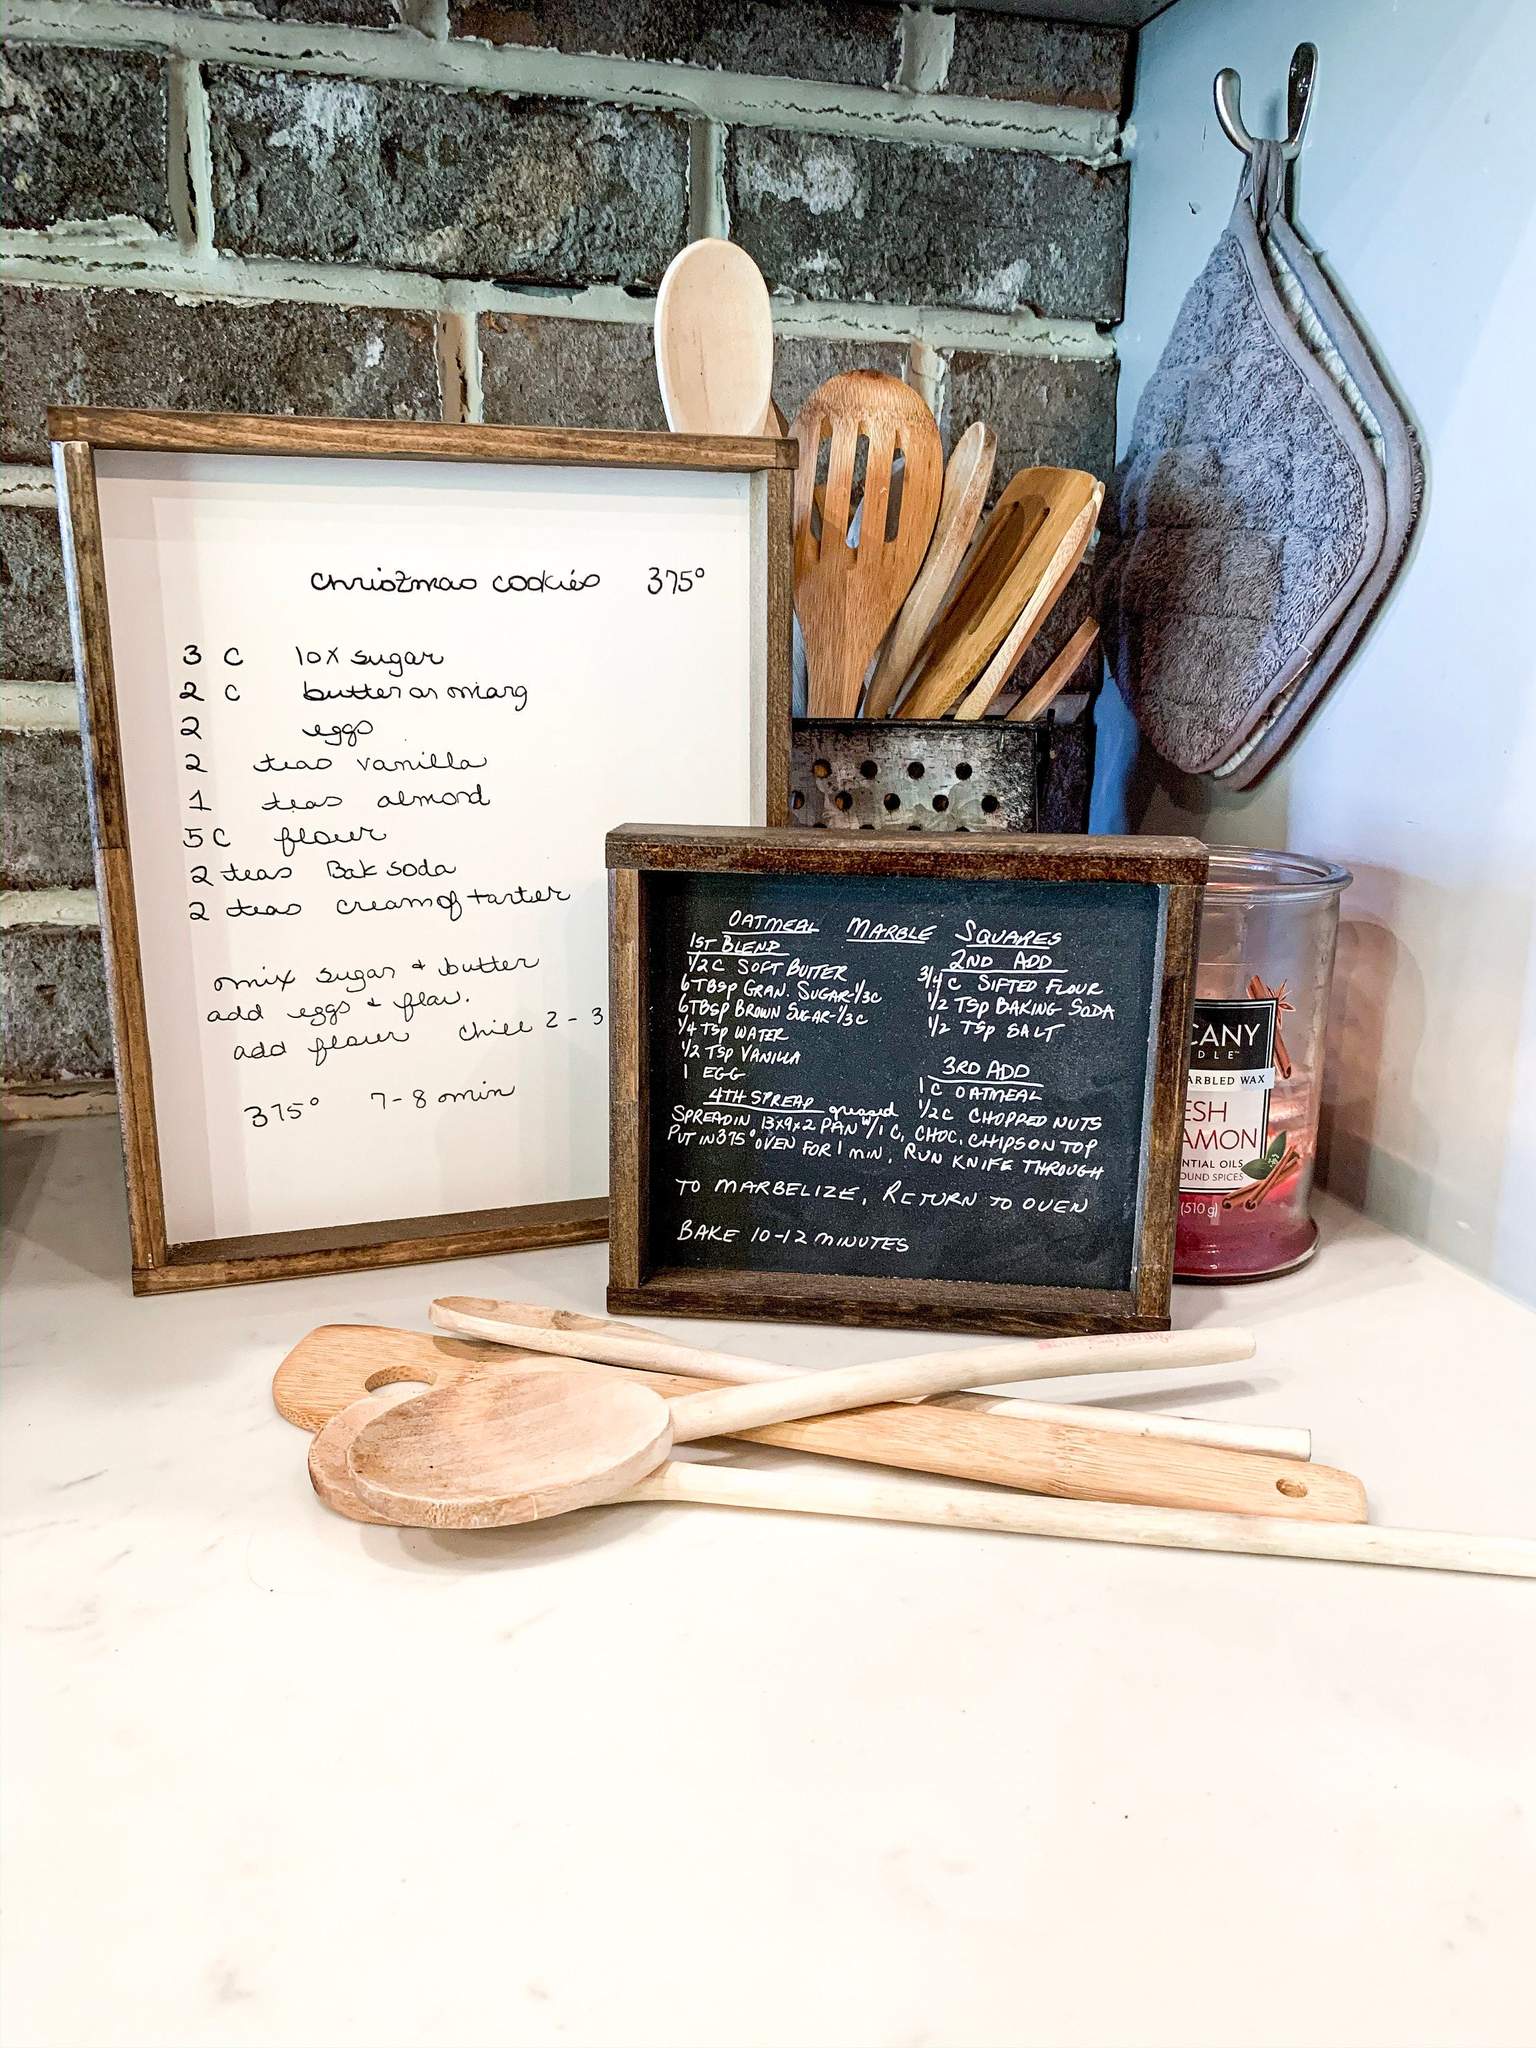 Christmas cookies 375°
3 C 10x sugar
2 C butter or marg
2 eggs
2 teas vanilla
1 teas almond
5 C flour
2 teas Bak soda
2 teas cream of tarter
mix sugar + butter
add eggs + flav.
add flour chill 2 - 3
375° 7-8 min
OATMEAL MARBLE SQUARES
1ST BLEND
1/2 C SOFT BUTTER
6 TBSP GRAN. SUGAR-1/3C
6 TBSP BROWN SUGAR-1/3C
1/4 TSP WATER
1/2 TSP VANILLA
1 EGG
2ND ADD
3/4 C SIFTED FLOUR
1/2 TSP BAKING SODA
1/2 TSP SALT
3RD ADD
1 C OATMEAL
1/2 C CHOPPED NUTS
4TH SPREAD greased
SPREAD IN 13x9x2 PAN W/1 C. CHOC. CHIPS ON TOP
PUT IN 375° OVEN FOR 1 MIN. RUN KNIFE THROUGH
TO MARBELIZE, RETURN TO OVEN
BAKE 10-12 MINUTES
CANY
DLE™
ARBLED WAX
ESH
AMON
NTIAL OILS
OUND SPICES
(510 g)